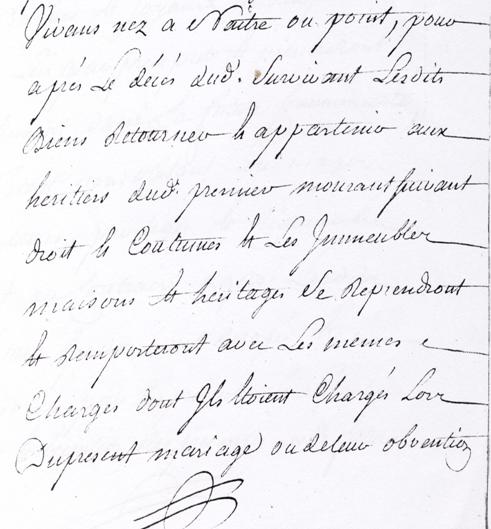 Vivans nez a Naître ou point, pour
aprés Le décés dud. Survivant Lesdits
Biens Retourner & appartenir aux
heritiers dud. premier mourant suivant
droit & Coutumes & Les Immeubles
maisons & heritages Se Reprendront
& Remporteront avec Les memes
Charges dont Ils Etoient Chargés Lors
Dupresent mariage ou deleur obvention